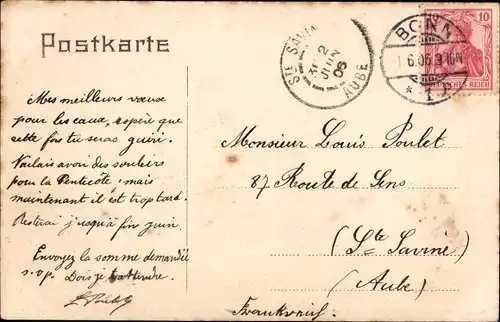 Postkarte
STE SAVINE
2 JUIN 06
AUBE
BONN
1.6.06.
* 1
10
DEUTSCHES REICH
Mes meilleurs vœux
pour les eaux, espère que
cette fois tu seras guéri.
Voilais avoir des souliers
pour la Pentecôte, mais
maintenant il est trop tard.
Resterai jusqu'à fin juin.
Envoyez la somme demandée
s.v.p. Dois je attendre.
Monsieur Louis Poulet
87 Route de Sens
(Ste Savine)
(Aube)
Frankreich.